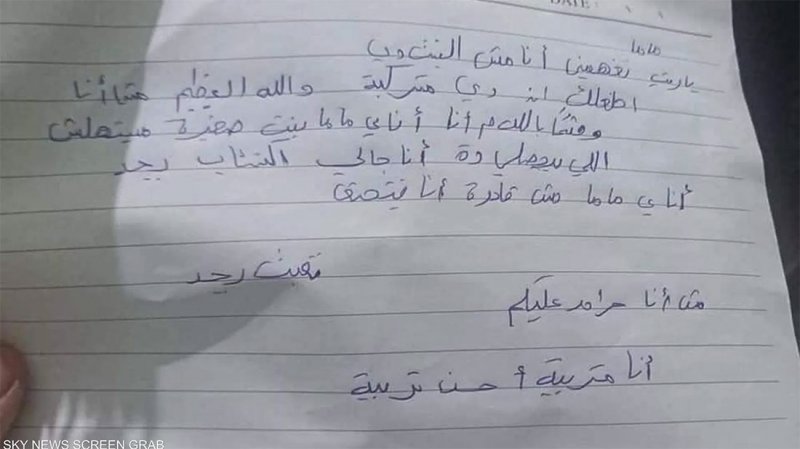 DATE:
ماما
ياريت تفهميني أنا مش البنت دي
دي متركبة والله العظيم مش أنا
بالله م أنا أناي ماما بنت صغيرة مستهلش
اللي بيحصلي دة أنا جالي اكتئاب بجد
أناي ماما مش قادرة أنا بتخنق
تعبت بجد
مش أنا حرام عليكم
أنا متربية أحسن تربية
SKY NEWS SCREEN GRAB